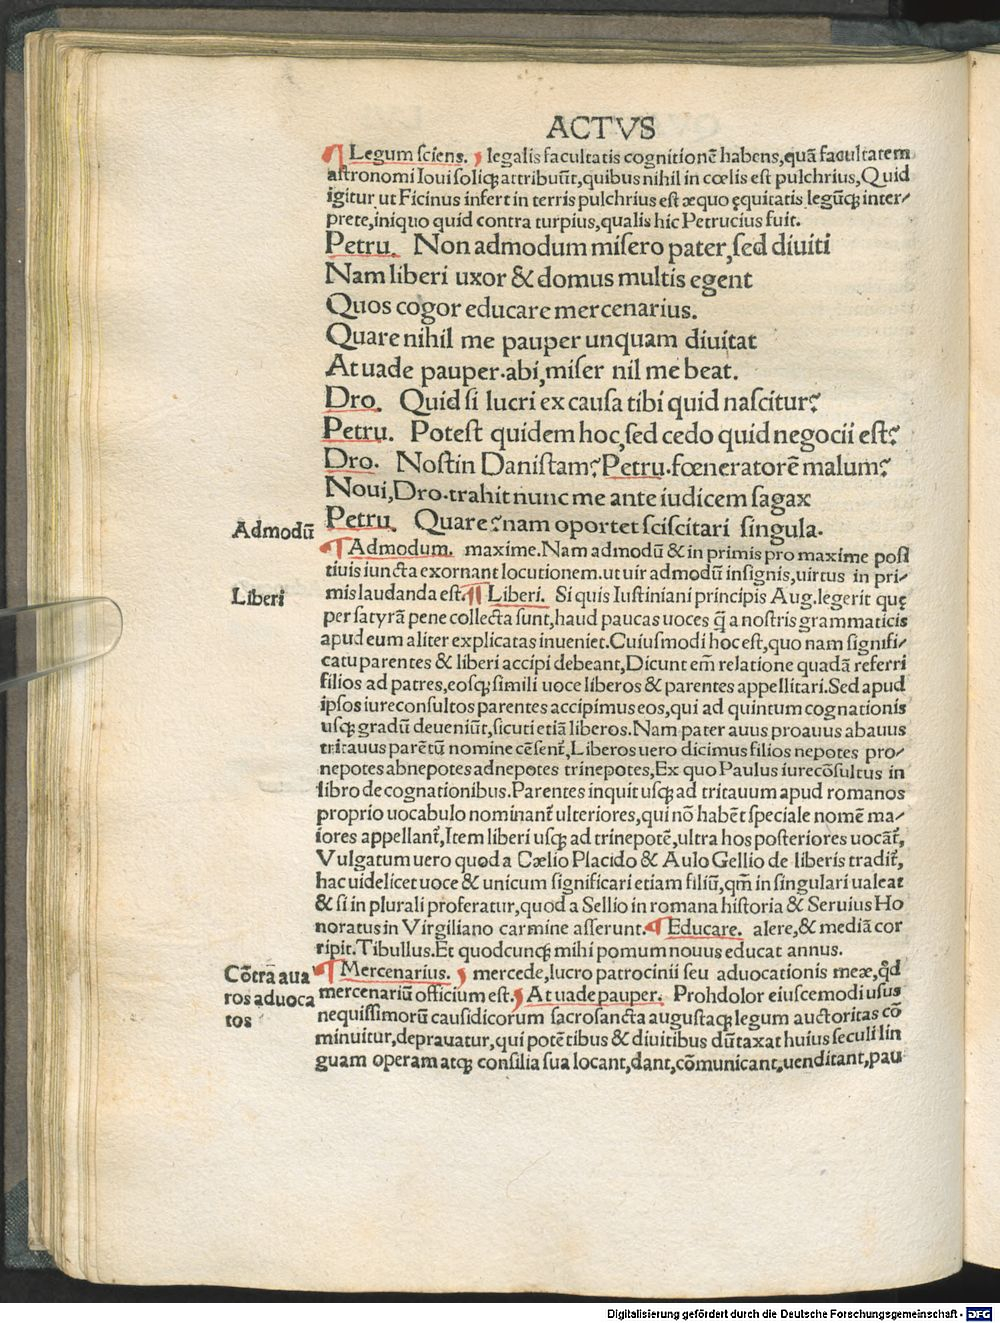 ACTVS
¶ Legum sciens. legalis facultatis cognitionē habens,quā facultatem
astronomi Ioui soliqꝫ attribuūt,quibus nihil in cœlis est pulchrius,Quid
igitur ut Ficinus infert in terris pulchrius est æquo ęquitatis legūqꝫ inter⸗
prete,iniquo quid contra turpius,qualis hic Petrucius fuit.
Petru. Non admodum misero pater,sed diuiti
Nam liberi uxor & domus multis egent
Quos cogor educare mercenarius.
Quare nihil me pauper unquam diuitat
At uade pauper.abi,miser nil me beat.
Dro. Quid si lucri ex causa tibi quid nascitur?
Petru. Potest quidem hoc,sed cedo quid negocii est?
Dro. Nostin Danistam?Petru.fœneratorē malum?
Noui,Dro.trahit nunc me ante iudicem sagax
Petru. Quare?nam oportet sciscitari singula.
Admodū
¶ Admodum. maxime.Nam admodū & in primis pro maxime posi
tiuis iuncta exornant locutionem.ut uir admodū insignis,uirtus in pri⸗
Liberi
mis laudanda est.¶ Liberi. Si quis Iustiniani principis Aug.legerit quę
per satyrā pene collecta sunt,haud paucas uoces q̄ a nostris grammaticis
apud eum aliter explicatas inueniet.Cuiusmodi hoc est,quo nam signifi⸗
catu parentes & liberi accipi debeant,Dicunt em̄ relatione quadā referri
filios ad patres,eosqꝫ simili uoce liberos & parentes appellitari.Sed apud
ipsos iureconsultos parentes accipimus eos,qui ad quintum cognationis
usqꝫ gradū deueniūt,sicuti etiā liberos.Nam pater auus proauus abauus
tritauus parētū nomine cēsent̄,Liberos uero dicimus filios nepotes pro⸗
nepotes abnepotes adnepotes trinepotes,Ex quo Paulus iurecōsultus in
libro de cognationibus.Parentes inquit usqꝫ ad tritauum apud romanos
proprio uocabulo nominant̄ ulteriores,qui nō habēt speciale nomē ma⸗
iores appellant̄,Item liberi usqꝫ ad trinepotē,ultra hos posteriores uocāt̄,
Vulgatum uero quod a Cælio Placido & Aulo Gellio de liberis tradit̄,
hac uidelicet uoce & unicum significari etiam filiū,qm̄ in singulari ualeat
& si in plurali proferatur,quod a Sellio in romana historia & Seruius Ho
noratus in Virgiliano carmine asserunt.¶ Educare. alere,& mediā cor
ripit.Tibullus.Et quodcunqꝫ mihi pomum nouus educat annus.
Cōtra aua
ros aduoca
tos
¶ Mercenarius. mercede,lucro patrocinii seu aduocationis meæ,qd̄
mercenariū officium est. At uade pauper. Prohdolor eiuscemodi usus
nequissimorū causidicorum sacrosancta augustaqꝫ legum auctoritas cō
minuitur,deprauatur,qui potētibus & diuitibus dūtaxat huius seculi lin
guam operam atqꝫ consilia sua locant,dant,cōmunicant,uenditant,pau
Digitalisierung gefördert durch die Deutsche Forschungsgemeinschaft - DFG